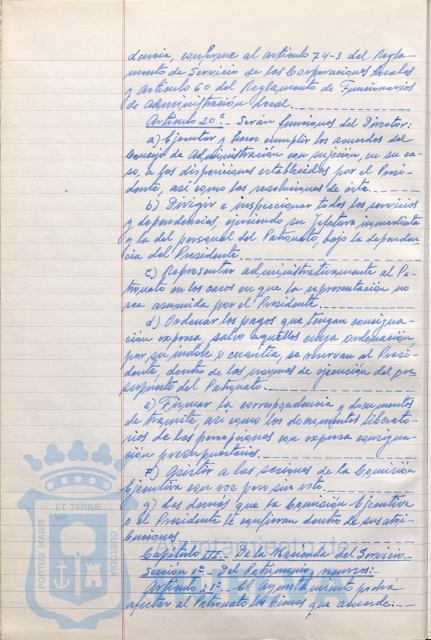 dencia, conforme al artículo 74-3 del Regla-
mento de Servicio de las Corporaciones Locales
y artículo 60 del Reglamento de Funcionarios
de Administración Local.
Artículo 20º.- Serán funciones del Director:
a) Ejecutar y hacer cumplir los acuerdos del
Consejo de Administración con sujeción, en su ca-
so, a las disposiciones establecidas por el Presi-
dente, así como las resoluciones de éste.
b) Dirigir e inspeccionar todos los servicios
y dependencias, ejerciendo su Jefatura inmediata
y la del personal del Patronato, bajo la dependen-
cia del Presidente.
c) Representar administrativamente al Pa-
tronato en los casos en que la representación no
sea asumida por el Presidente.
d) Ordenar los pagos que tengan consigna-
ción expresa, salvo aquellos cuya ordenación,
por su índole o cuantía, se reservan al Presi-
dente, dentro de las normas de ejecución del pre
supuesto del Patronato.
e) Firmar la correspondencia y documentos
de trámite, así como los documentos liberato-
rios de las percepciones con expresa consigna-
ción presupuestaria.
f) Asistir a las sesiones de la Comisión
Ejecutiva con voz pero sin voto.
g) Las demás que la Comisión Ejecutiva
o el Presidente le confieran dentro de sus atri-
buciones.
Capítulo III.- De la Hacienda del Servicio.
Sección 1ª.- Del Patrimonio, recursos:
Artículo 21º.- El Ayuntamiento podrá
afectar al Patronato los bienes que acuerde:
ET TERRÆ
PORTUS MARIS
CUSTODIA